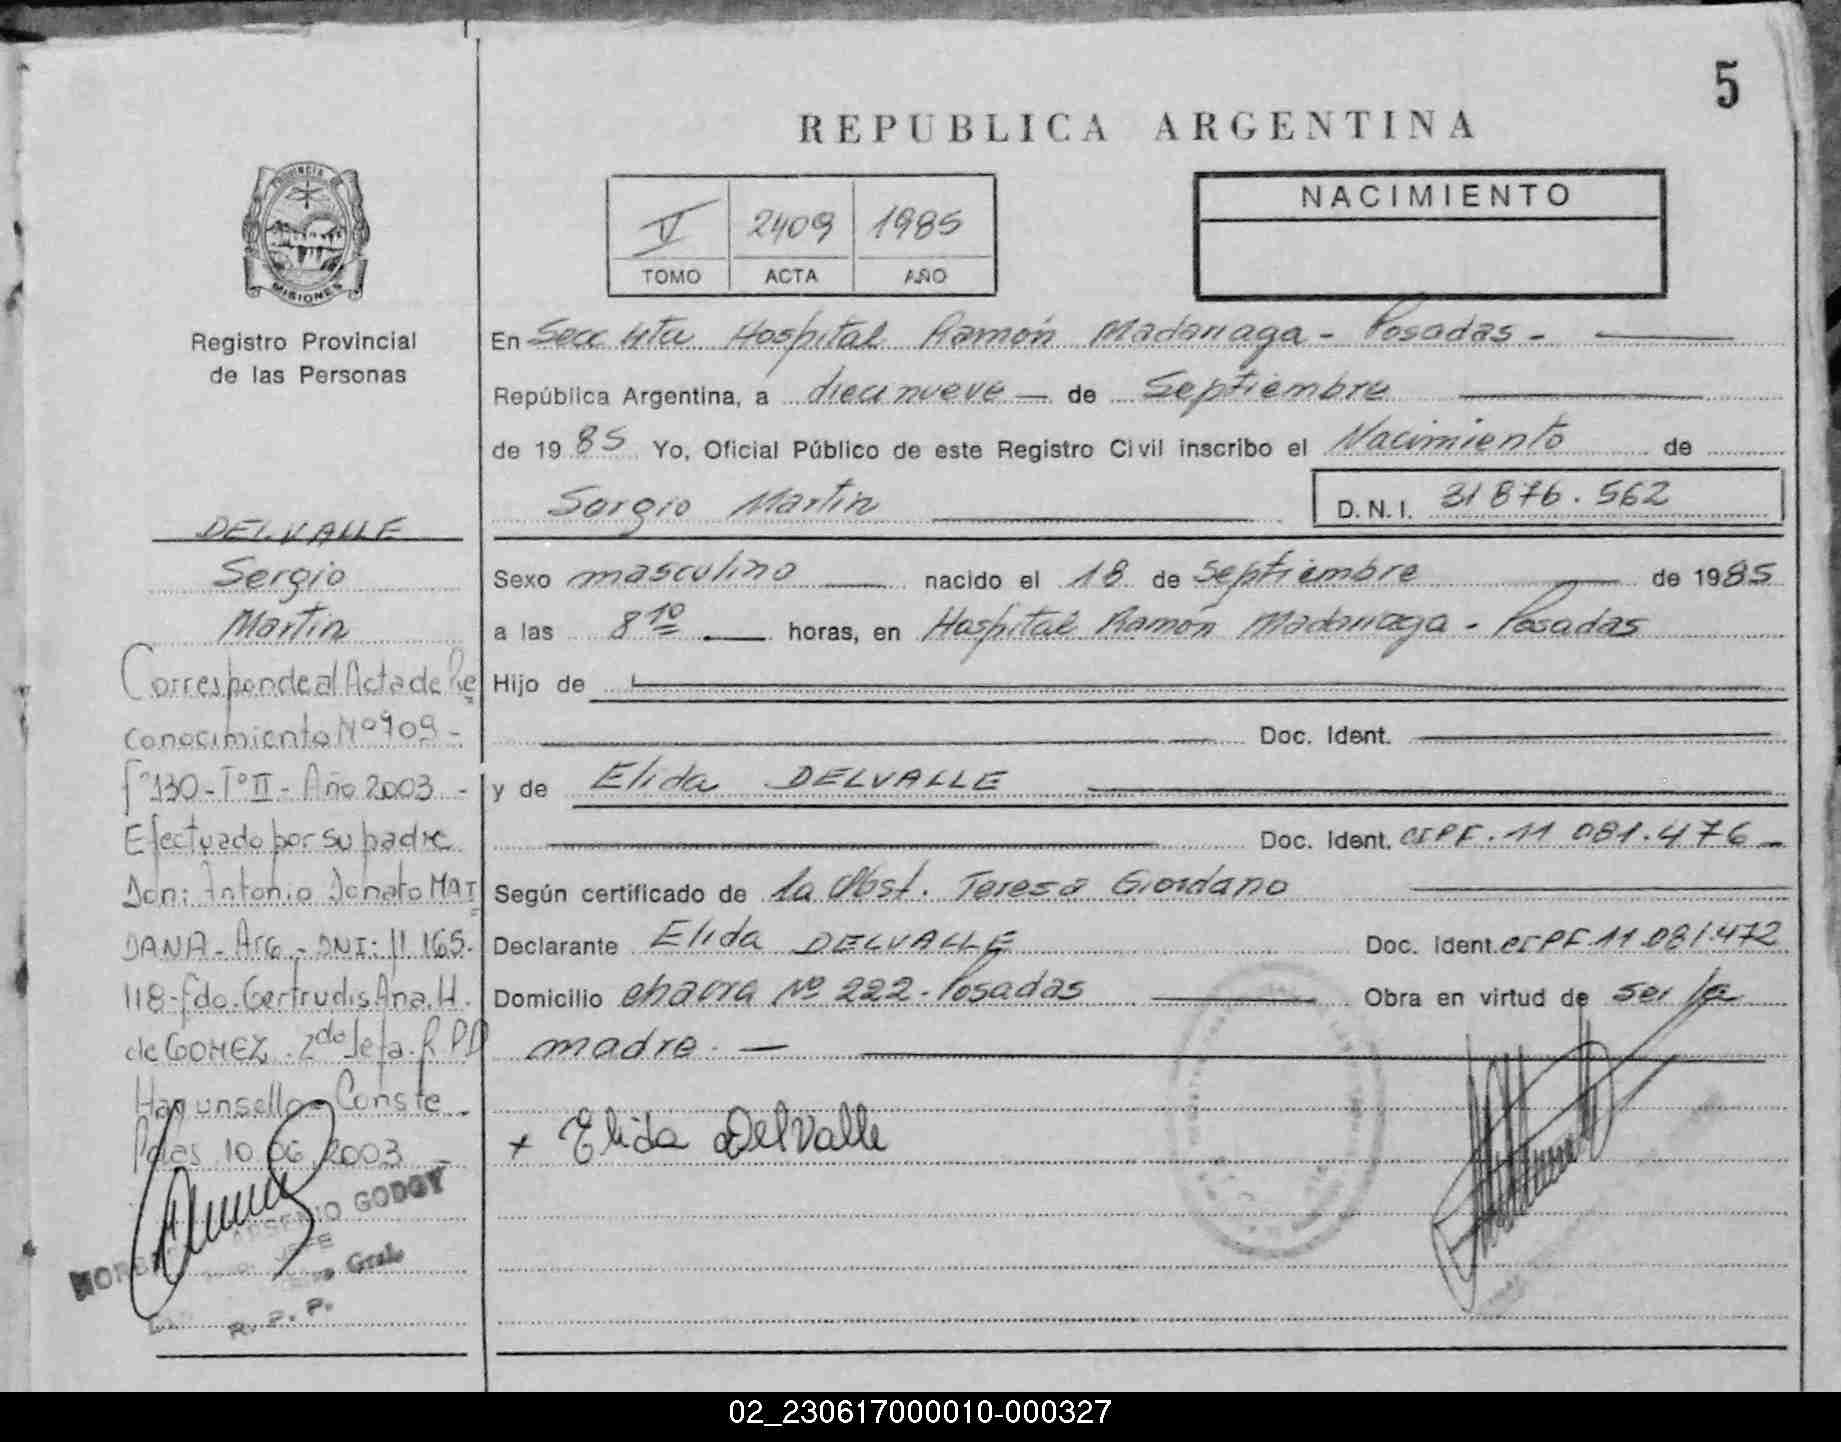 5
REPUBLICA ARGENTINA
PROVINCIA DE
MISIONES
V 2409 1985
TOMO ACTA AÑO
NACIMIENTO
Registro Provincial
de las Personas
En Secc 4ta Hospital Ramón Madariaga - Posadas -
República Argentina, a diecinueve — de Septiembre
de 1985 Yo, Oficial Público de este Registro Civil inscribo el Nacimiento de
Sergio Martin D.N.I. 31876.562
Sexo masculino nacido el 18 de Septiembre de 1985
a las 8 10 horas, en Hospital Ramón Madariaga - Posadas
Hijo de
Doc. Ident.
y de Elida DELVALLE
Doc. Ident. CIPF. 11 081.476
Según certificado de la Obst. Teresa Giordano
Declarante Elida DELVALLE Doc. Ident. CIPF 11.081.472
Domicilio chacra Nº 222 - Posadas Obra en virtud de ser la
madre. —
x Elida DelValle
DELVALLE
Sergio
Martin
Corresponde al Acta de Re
conocimiento Nº 909 -
fº 130 - Tº II - Año 2003 -
Efectuado por su padre
Don: Antonio Donato MAI
DANA - Arg - DNI: 11.165.
118 - fdo. Gertrudis Ana. H.
de GOMEZ. 2do Jefa. R.P.P
Hay un sello - Conste.
Pdas 10 06 2003
ARSENIO GODOY
JEFE
Gral.
R. P. P.
02_230617000010-000327